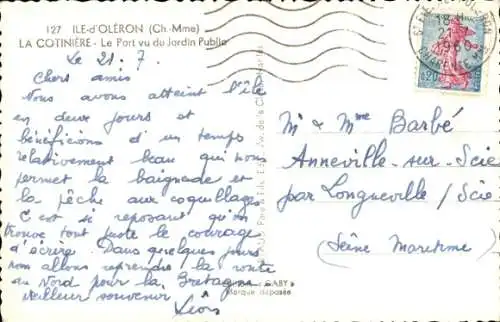 127 ILE-d'OLÉRON (Ch.-Mme)
LA COTINIÈRE - Le Port vu du Jardin Public
Le 21. 7.
Chers amis
Nous avons atteint l'île
en deux jours et
bénéficions d'un temps
relativement beau qui nous
permet la baignade et
la pêche aux coquillages
C'est si reposant qu'on
trouve tout juste le courage
d'écrire. Dans quelques jours
nous allons reprendre la route
du Nord pour la Bretagne
Meilleur souvenir
M & Mme Barbé
Anneville-sur-Scie
par Longueville / Scie
(Seine Maritime)
18 H
21
1960
0,20
GABY
Marque déposée